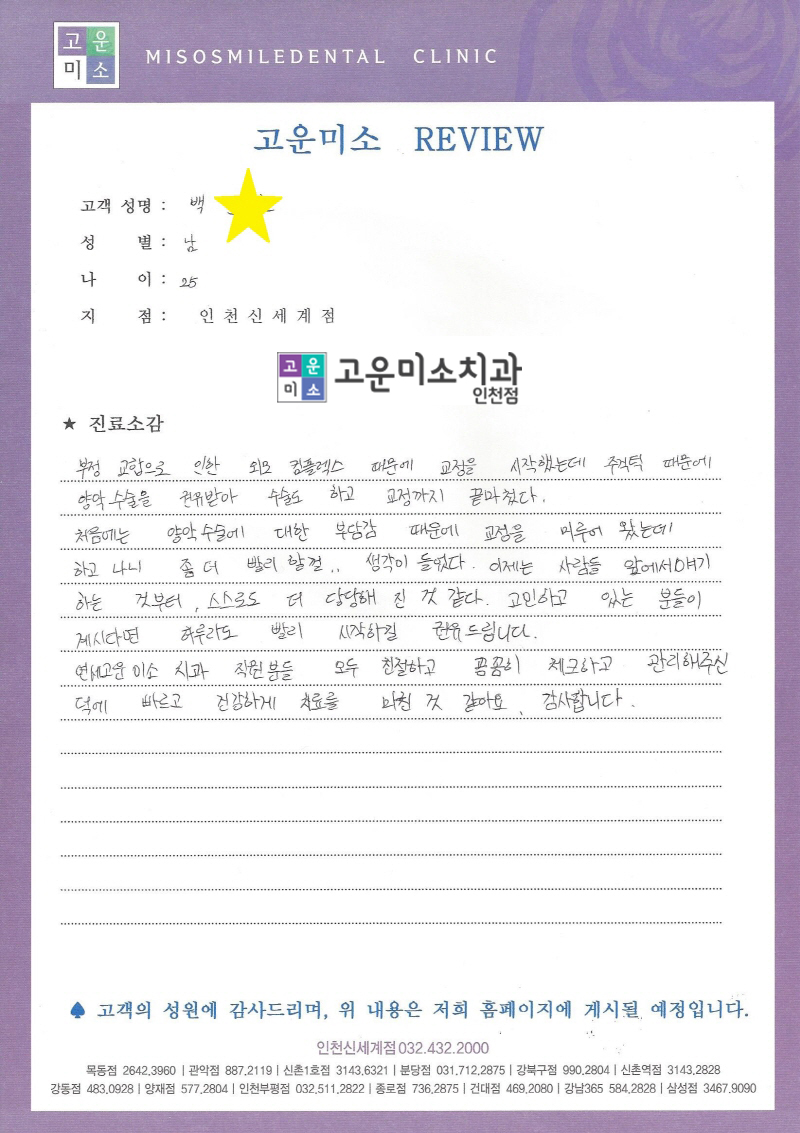 고운
미소
MISOSMILEDENTAL CLINIC
고운미소 REVIEW
고객 성명 : 백
성 별 : 남
나 이 : 25
지 점 : 인천신세계점
고운
미소
고운미소치과
인천점
★ 진료소감
부정 교합으로 인한 외모 컴플렉스 때문에 교정을 시작했는데 주걱턱 때문에
양악수술을 권유받아 수술도 하고 교정까지 끝마쳤다.
처음에는 양악수술에 대한 부담감 때문에 교정을 미루어 왔는데
하고 나니 좀 더 빨리 할걸.. 생각이 들었다. 이제는 사람들 앞에서 얘기
하는 것부터, 스스로도 더 당당해 진 것 같다. 고민하고 있는 분들이
계시다면 하루라도 빨리 시작하길 권유드립니다.
연세고운미소 치과 직원분들 모두 친절하고 꼼꼼히 체크하고 관리해주신
덕에 빠르고 건강하게 치료를 마친 것 같아요, 감사합니다.
♠ 고객의 성원에 감사드리며, 위 내용은 저희 홈페이지에 게시될 예정입니다.
인천신세계점 032.432.2000
목동점 2642,3960 | 관악점 887,2119 | 신촌1호점 3143,6321 | 분당점 031,712,2875 | 강북구점 990,2804 | 신촌역점 3143,2828
강동점 483,0928 | 양재점 577,2804 | 인천부평점 032,511,2822 | 종로점 736,2875 | 건대점 469,2080 | 강남365 584,2828 | 삼성점 3467.9090